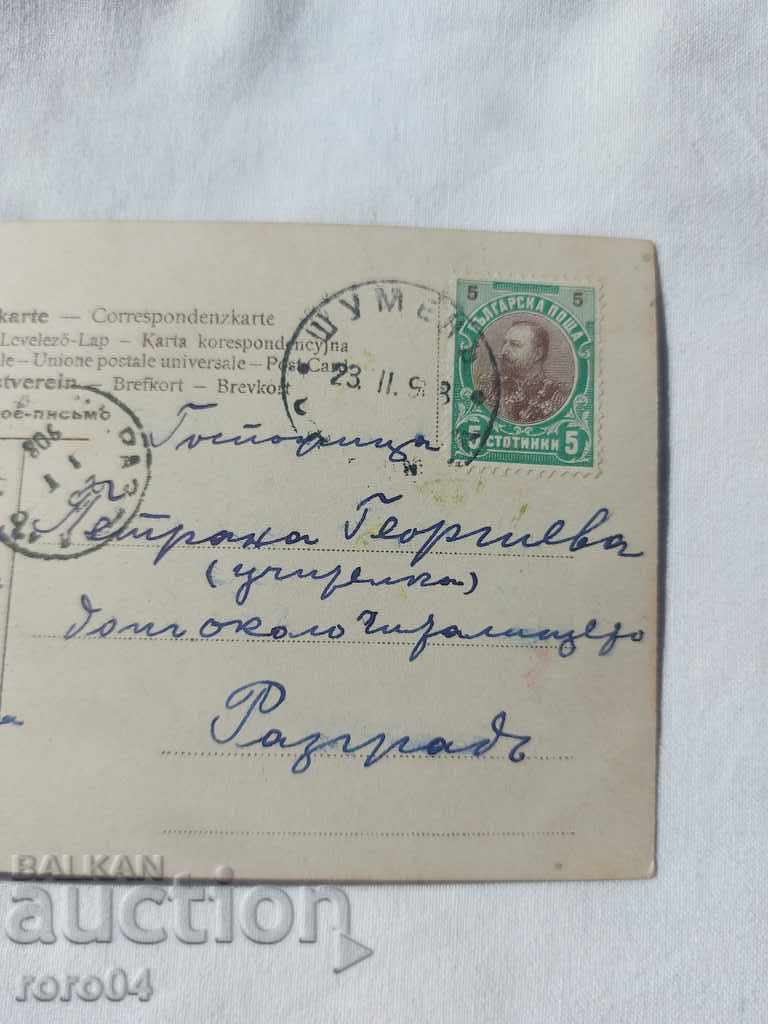 karte — Correspondenzkarte
Levelező-Lap — Karta korespondencyjna
le — Unione postale universale — Post Card
stverein — Brefkort — Brevkort
ое-письмо
ШУМЕНЪ
23. II.
908
БЪЛГАРСКА ПОЩА
5 5
5 СТОТИНКИ 5
Госпожица
Петрана Георгиева
(учителка)
около Читалището
Разградъ
BALKAN
auction
roro04